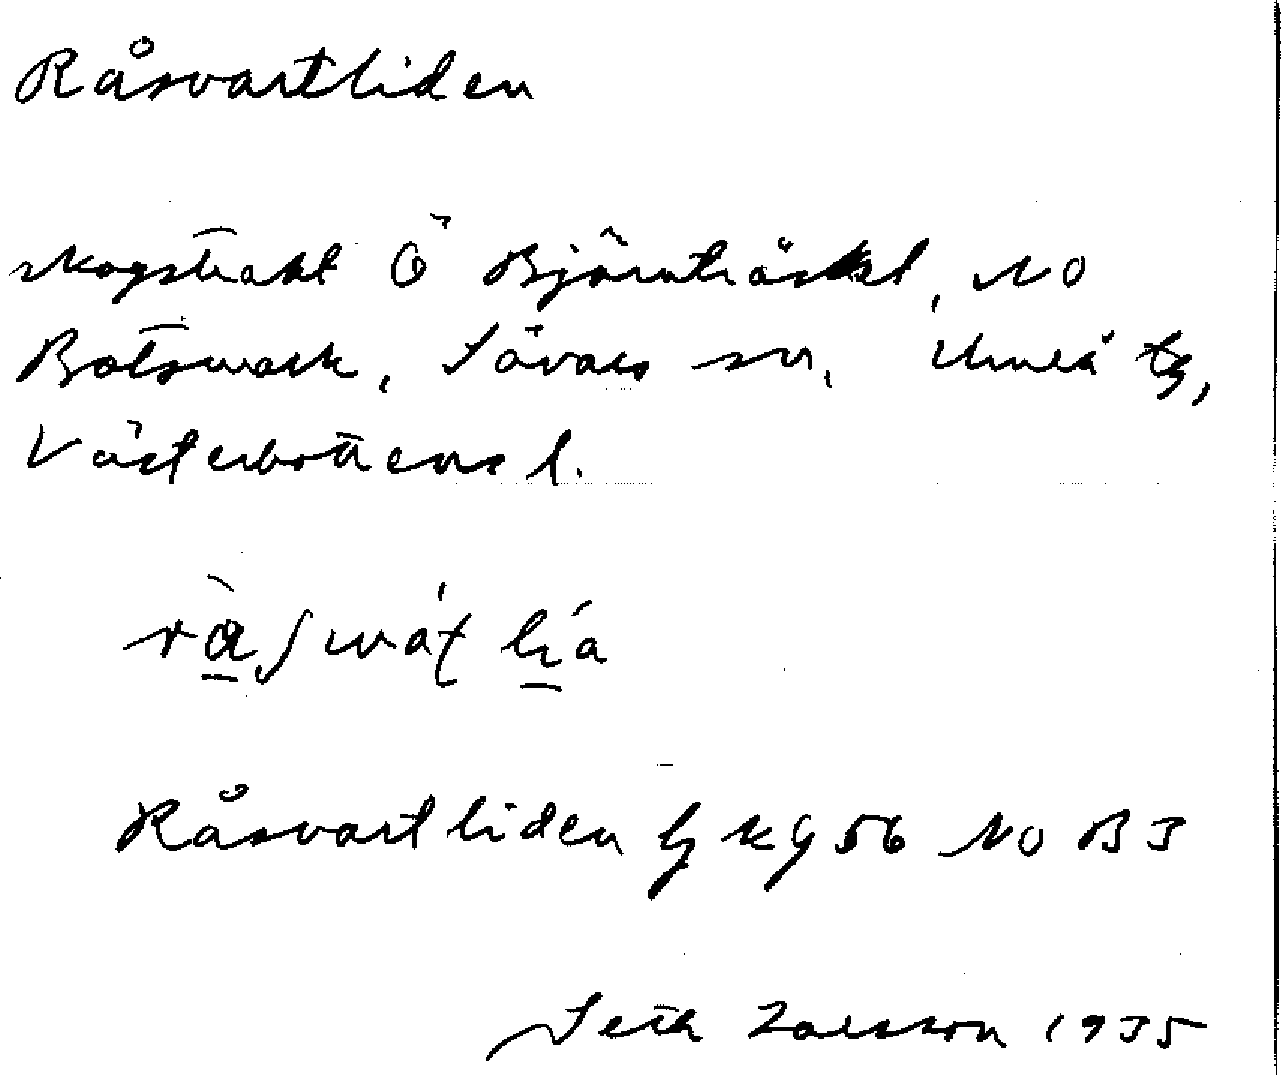 Råsvartliden
skogstrakt Ö Björnträsket, NO
Botsmark, Sävars sn, Umeå tg,
Västerbottens l.
Råsvartliden Gg kg 56 NO B3
Seth Larsson 1935